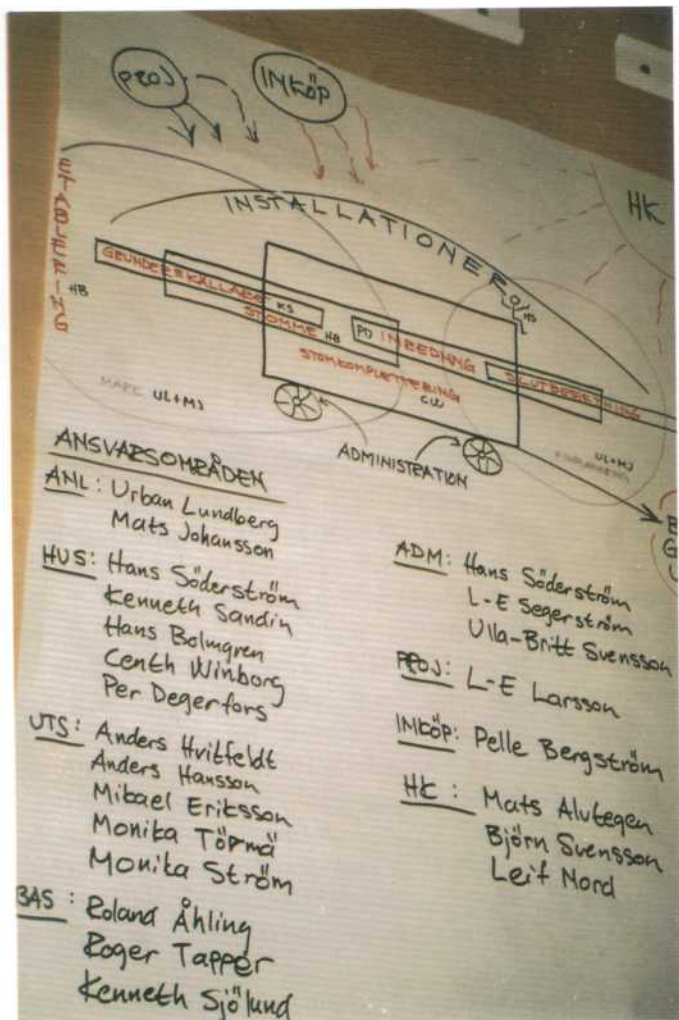 PROJ
INKÖP
HK
ETABLERING
HB
INSTALLATIONER
HS
GRUNDER & KÄLLARE KS
STOMME HB
PD INREDNING
STOMKOMPLETTERING
CW
SLUTBESIKTNING
MARK UL+MJ
ADMINISTRATION
UL+MJ
ANSVARSOMRÅDEN
ANL: Urban Lundberg
Mats Johansson
HUS: Hans Söderström
Kenneth Sandin
Hans Bolmgren
Centh Winborg
Per Degerfors
UTS: Anders Hvitfeldt
Anders Hansson
Mikael Eriksson
Monika Törmä
Monika Ström
BAS: Roland Åhling
Roger Tapper
Kenneth Sjölund
ADM: Hans Söderström
L-E Segerström
Ulla-Britt Svensson
PROJ: L-E Larsson
INKÖP: Pelle Bergström
HK: Mats Alutegen
Björn Svensson
Leif Nord